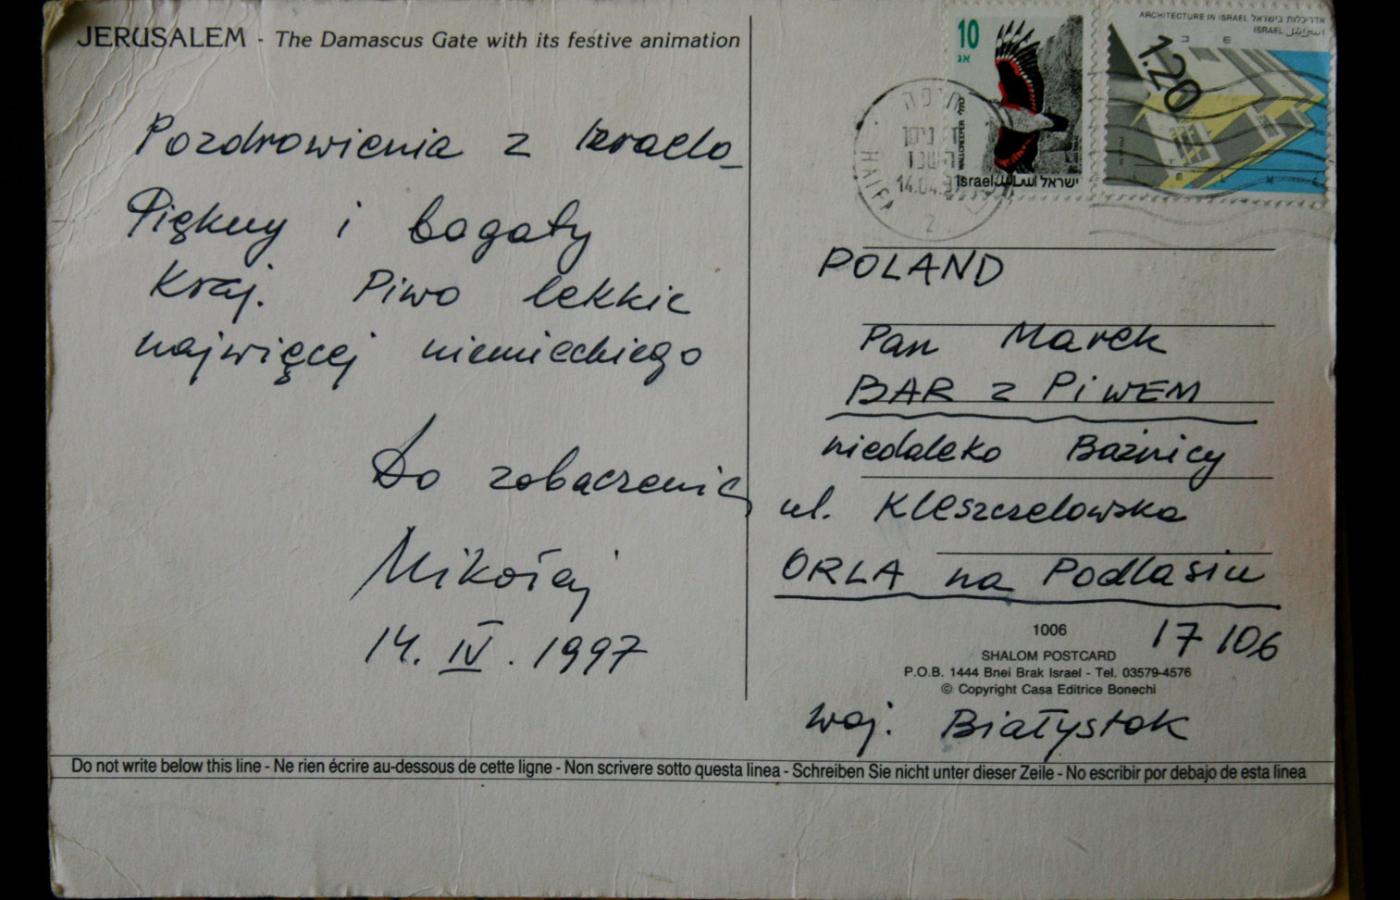 JERUSALEM - The Damascus Gate with its festive animation
Pozdrowienia z Izraela_
Piękny i bogaty
Kraj. Piwo lekkie
najwięcej niemieckiego
Do zobaczenia
Mikołaj
14. IV. 1997
10
אג
WALLCREEPER
Israel اسرائيل ישראל
ARCHITECTURE IN ISRAEL אדריכלות בישראל
ISRAEL اسرائيل
1.20
חיפה
HAIFA
14.04.97
2
POLAND
Pan Marek
BAR z PiWEM
niedaleko Bożnicy
ul. Kleszczelowska
ORLA na Podlasiu
17 106
1006
SHALOM POSTCARD
P.O.B. 1444 Bnei Brak Israel - Tel. 03579-4576
© Copyright Casa Editrice Bonechi
woj. Białystok
Do not write below this line - Ne rien écrire au-dessous de cette ligne - Non scrivere sotto questa linea - Schreiben Sie nicht unter dieser Zeile - No escribir por debajo de esta linea